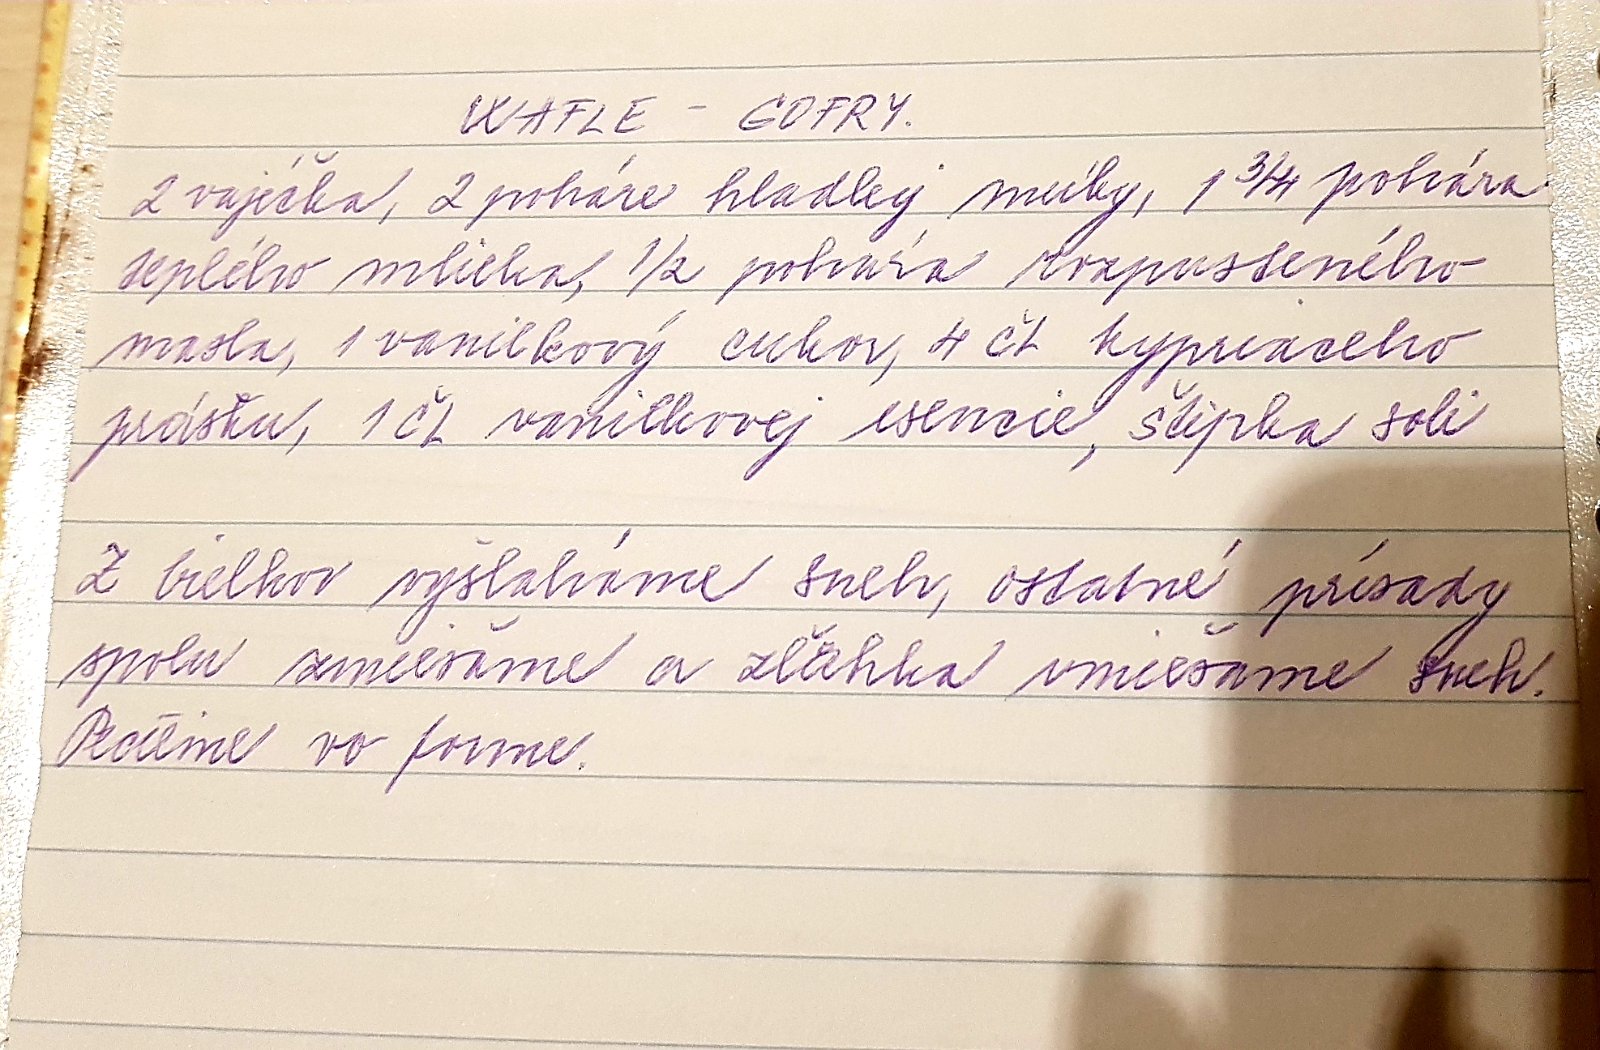 WAFLE - GOFRY.
2 vajéčka, 2 poháre hladkej múky, 1 3/4 pohára
teplého mlieka, 1/2 pohára rozpusteného
masla, 1 vanilkový cukor, 4 ČL kypriaceho
prášku, 1 ČL vanilkovej esencie, štipka soli
Z bielkov vyšlaháme sneh, ostatné prísady
spolu zmiešáme a zlěhka vmiešame sneh.
Pečieme vo forme.